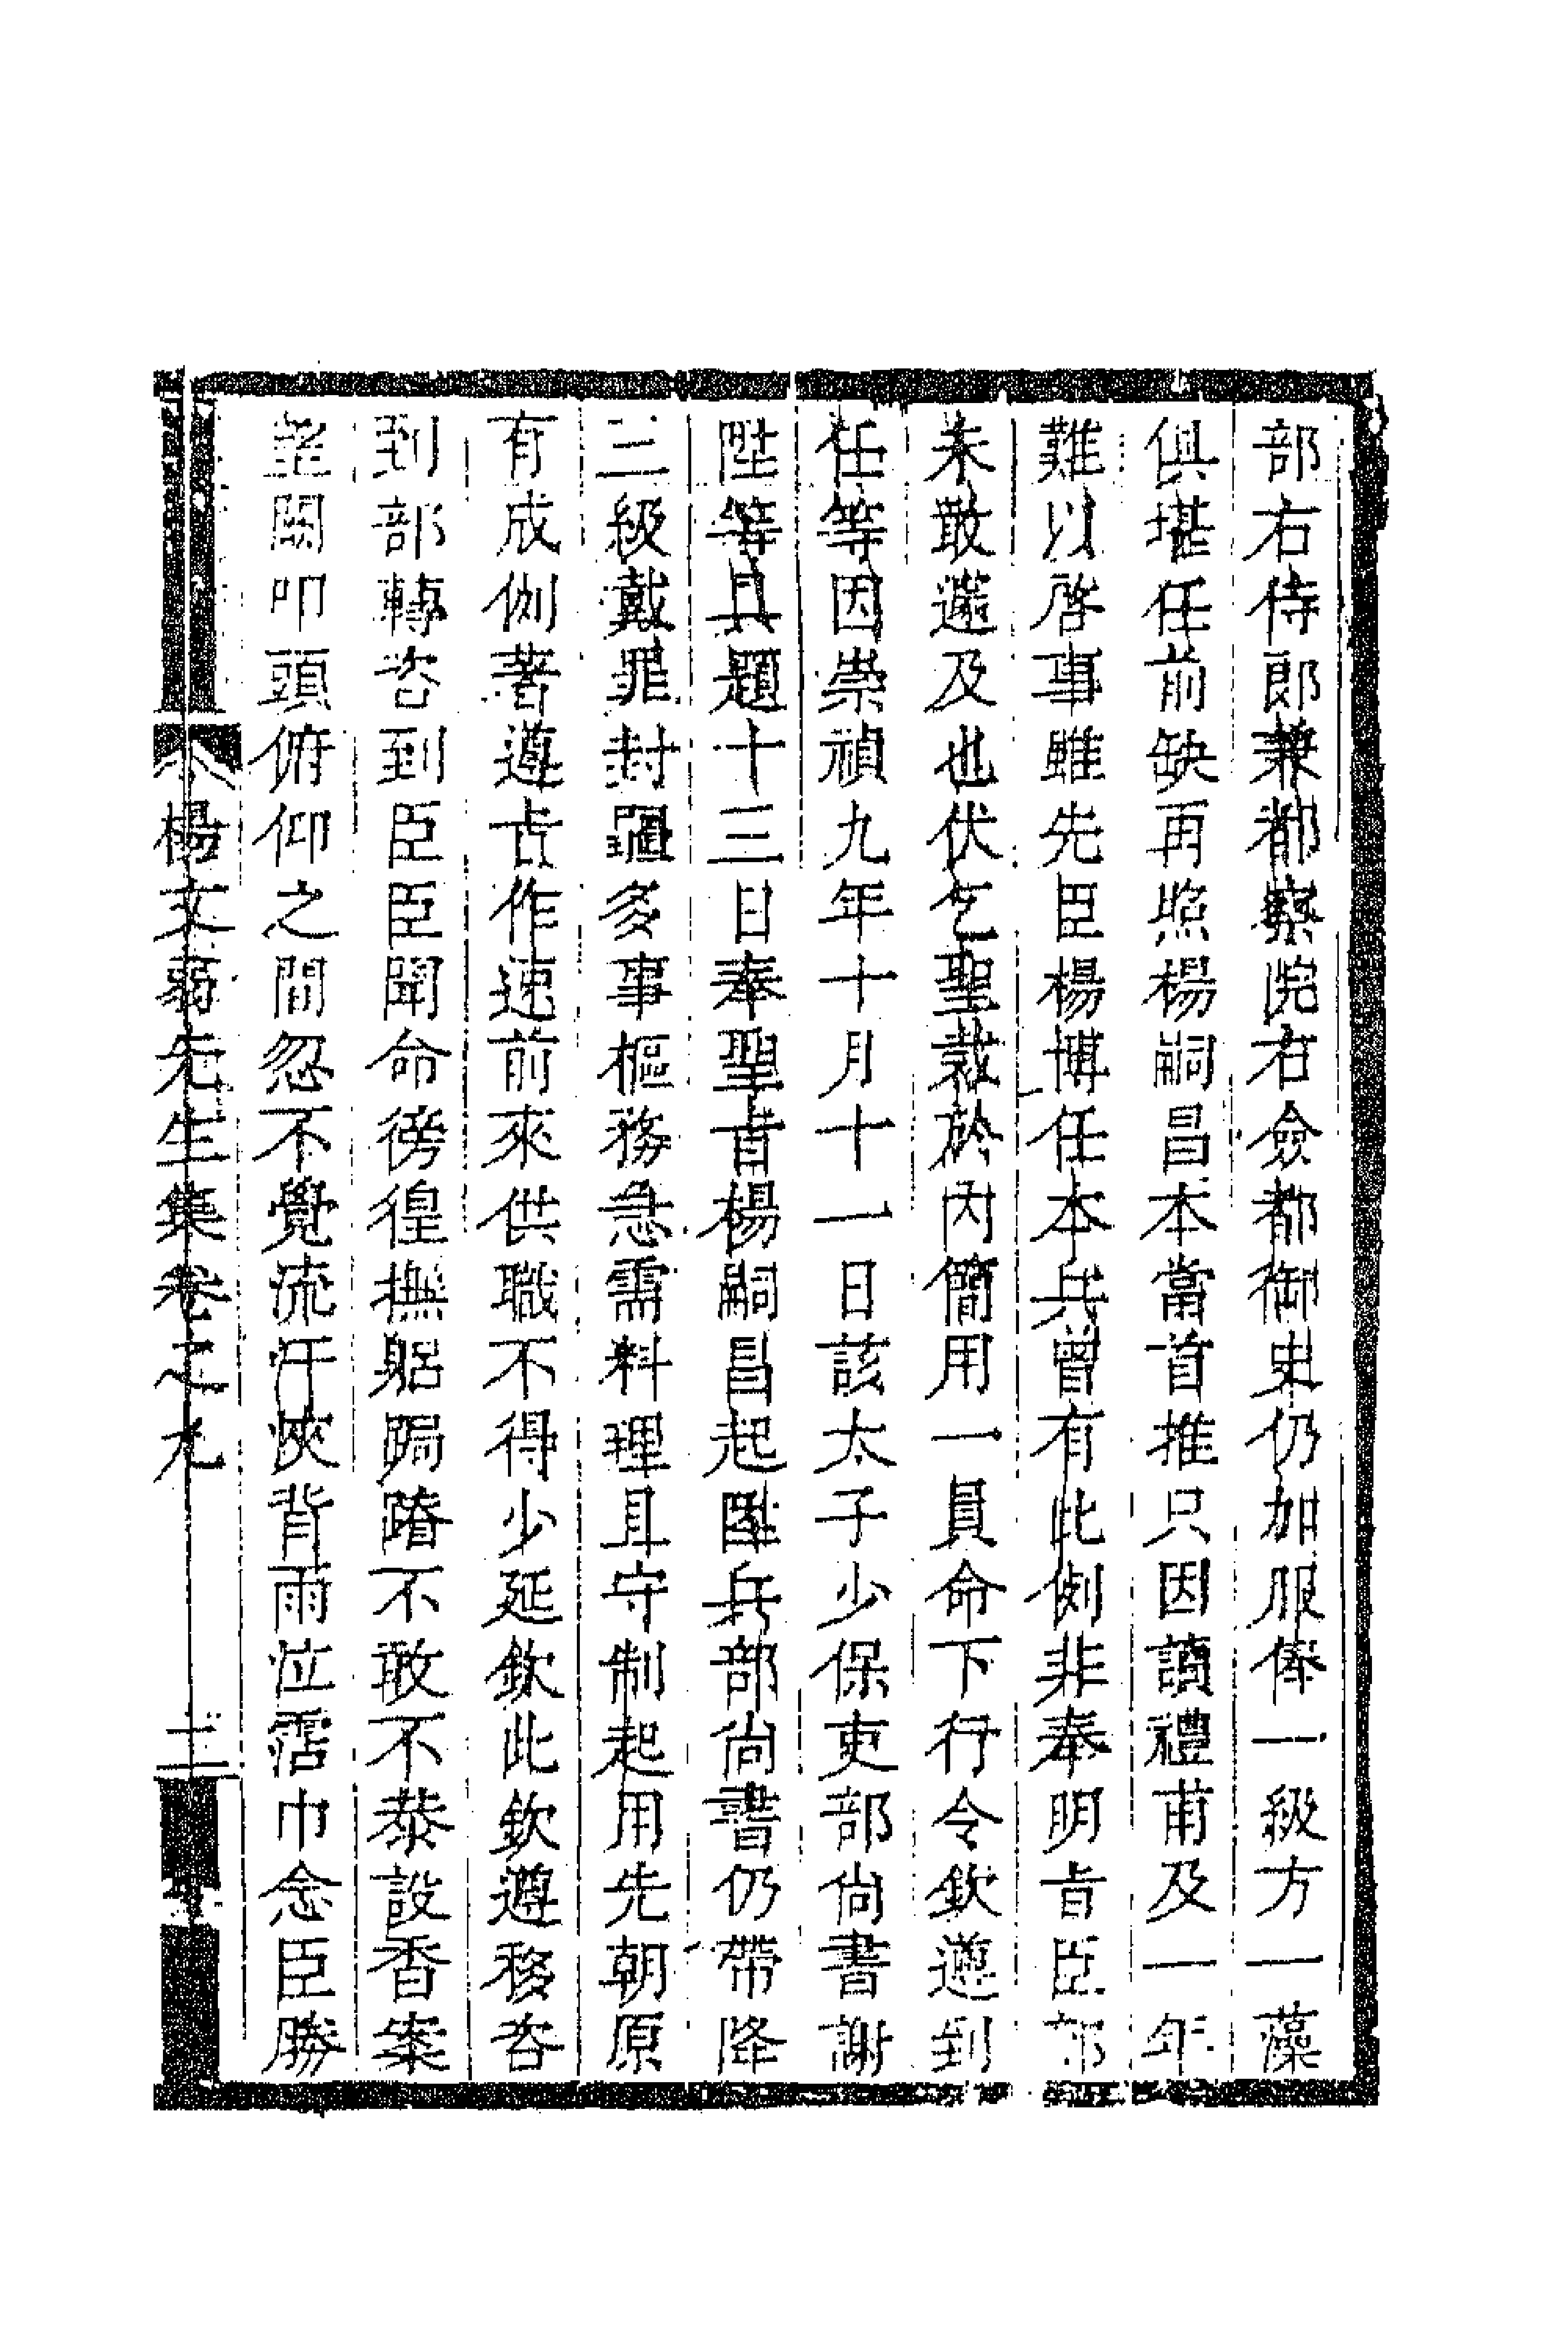 部右侍郎兼都察院右僉都御史仍加服俸一級方一藻
俱堪任前缺再照楊嗣昌本當首推只因讀禮甫及一年
難以啓事雖先臣楊博任本兵曾有此例非奉明旨臣部
未敢遽及也伏乞聖裁於內簡用一員命下行令欽遵到
任等因崇禎九年十月十一日該太子少保吏部尚書謝
陞等具題十三日奉聖旨楊嗣昌起陞兵部尚書仍帶降
三級戴罪封疆多事樞務急需料理且守制起用先朝原
有成例著遵旨作速前來供職不得少延欽此欽遵移咨
到部轉咨到臣臣聞命徬徨撫躬跼蹐不敢不恭設香案
望闕叩頭俯仰之間忽不覺流汗浹背雨泣霑巾念臣勝
楊文弱先生集卷之九